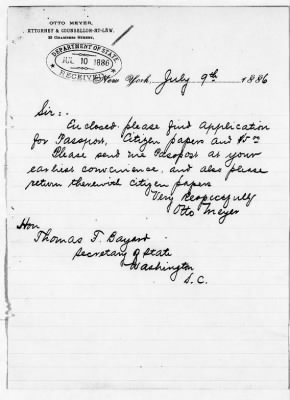 OTTO MEYER,
ATTORNEY & COUNSELLOR-AT-LAW,
CHAMBERS STREET,
DEPARTMENT OF STATE,
JUL 10 1886
RECEIVED
New York, July 9th 1886
Sir:
Enclosed, please find application
for Passport, Citizen papers and
Please send me Passport at your
earliest convenience, and also please
return therewith citizen papers
Very Respectfully
Otto Meyer
Hon
Thomas F. Bayard
Secretary of State
Washington
D.C.